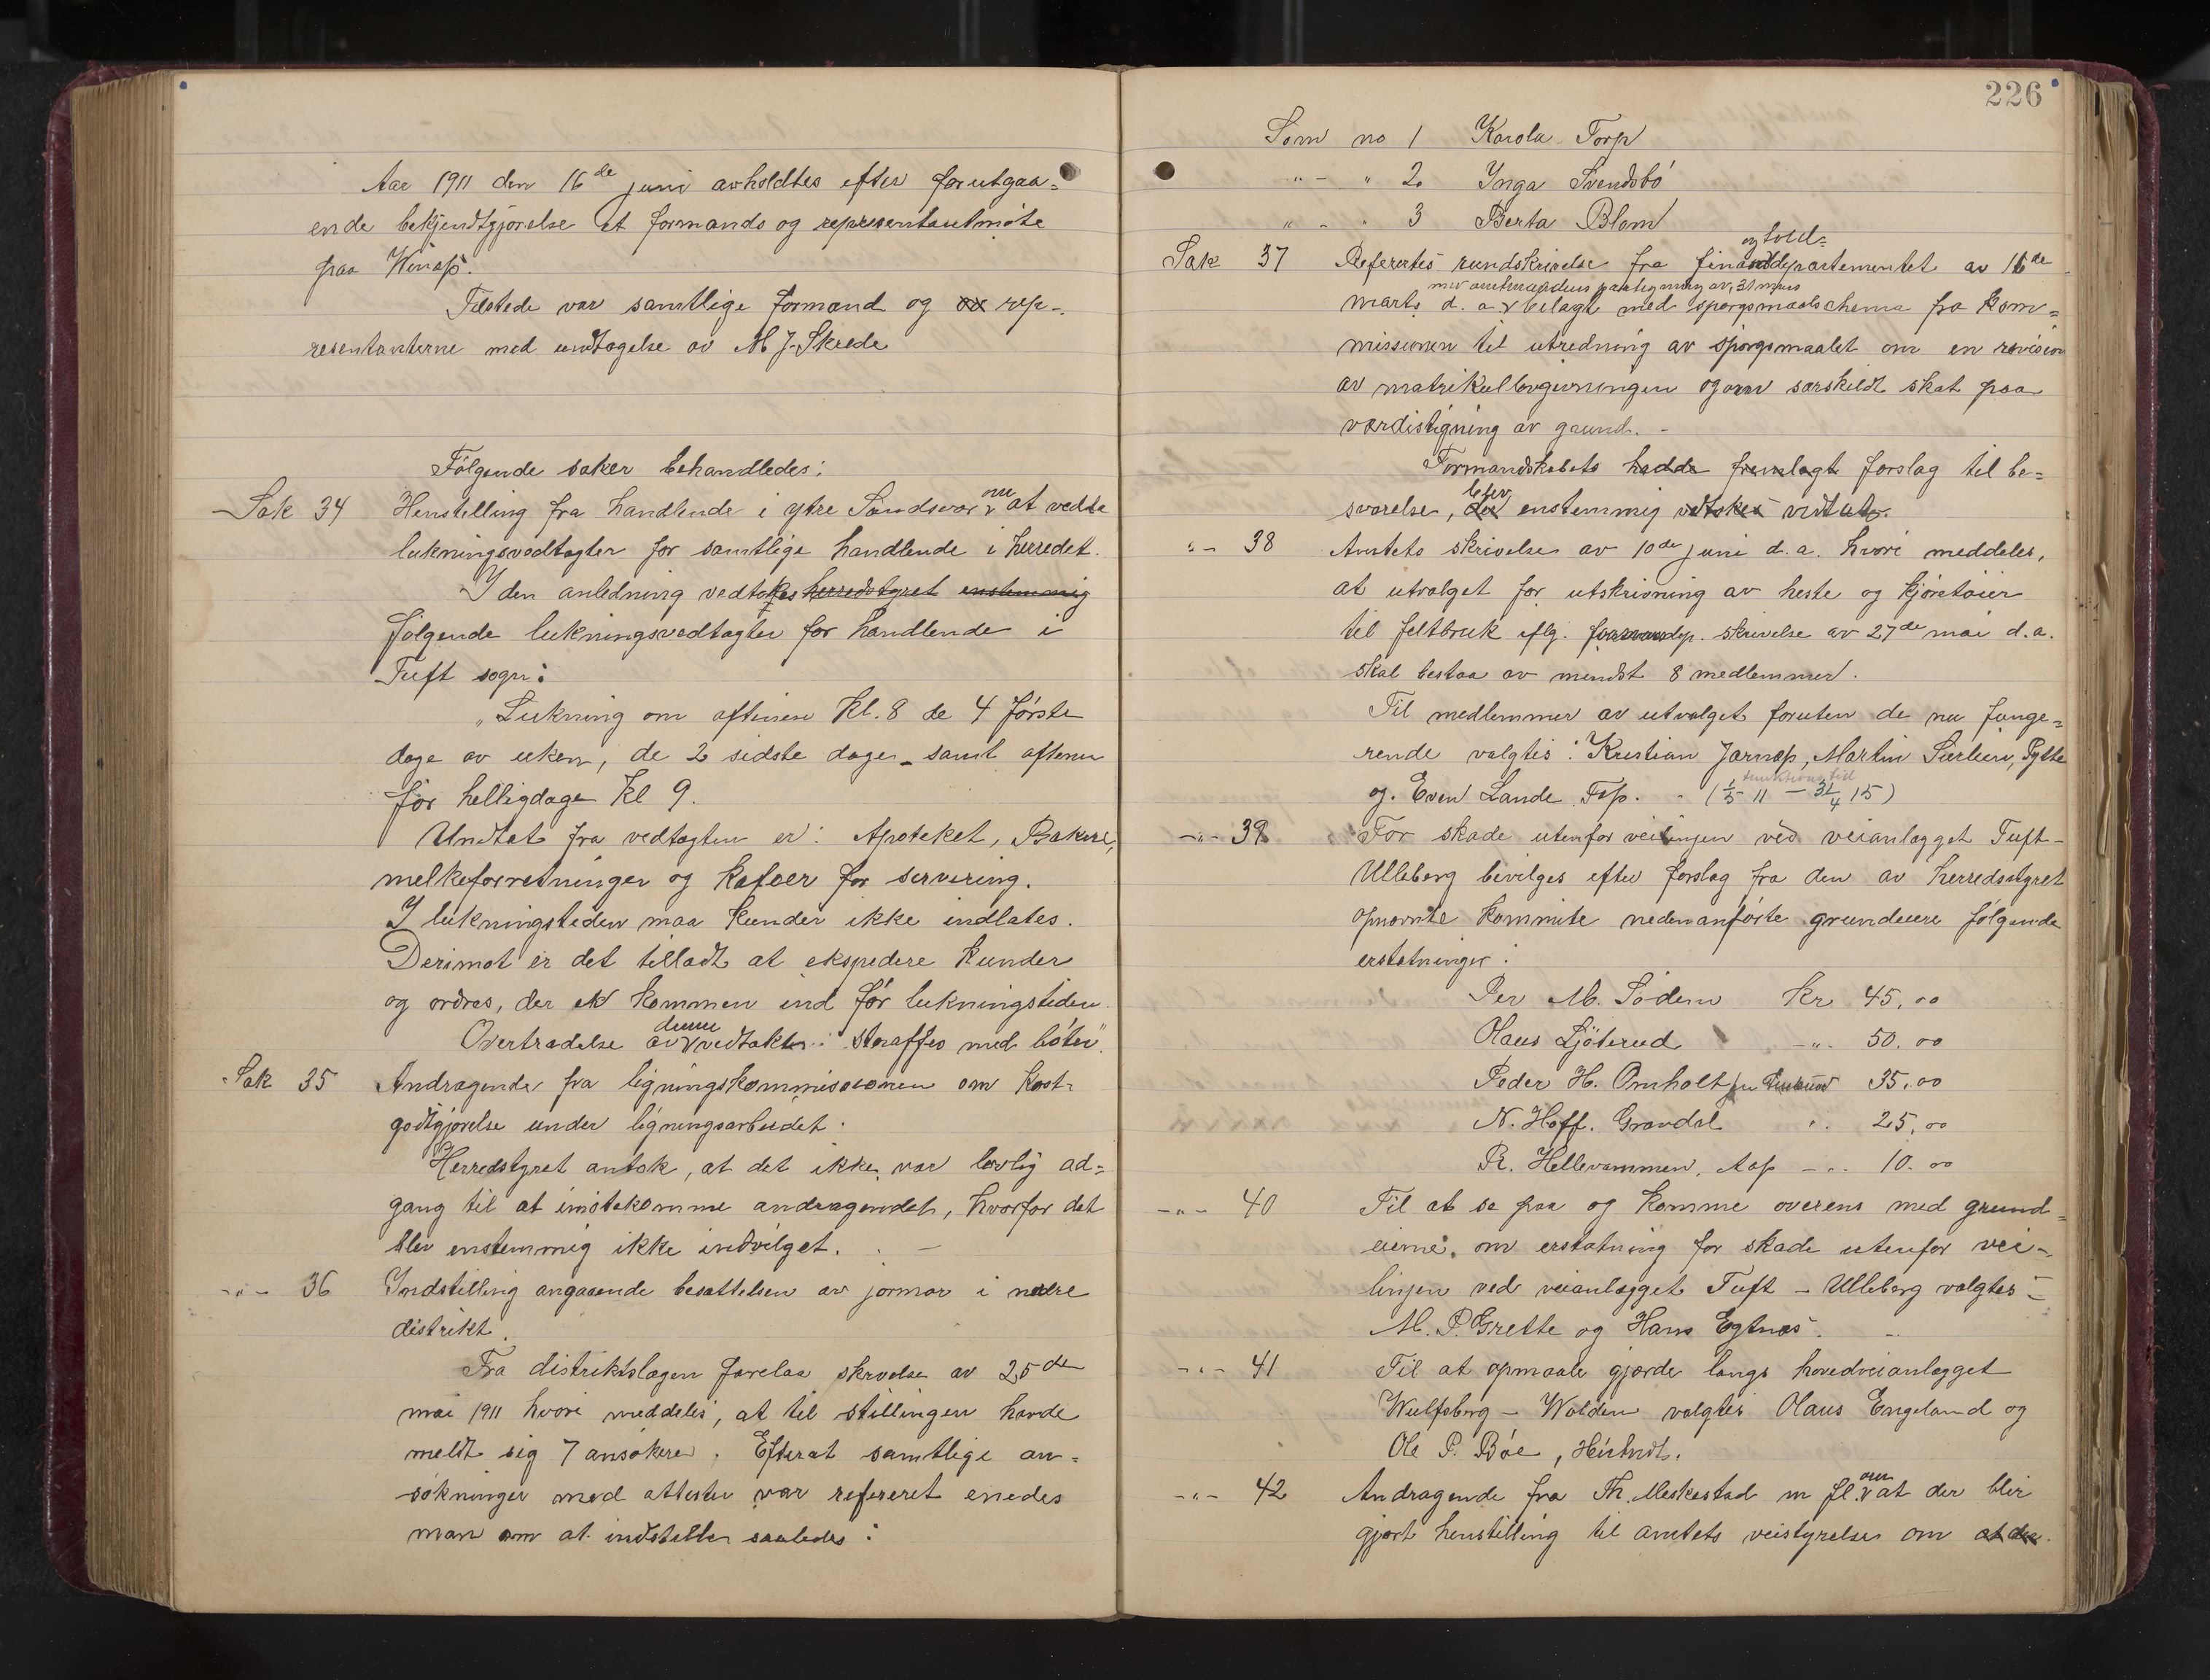 Aar 1911 den 16de juni avholdtes efter forutgaa=
ende bekjendtgjørelse et formands og representantmøte
paa
Tilstede var samtlige formænd og rep-
resentanterne med undtagelse av M J. Skrede
Følgende saker behandledes:
Sak 34 Henstilling fra handlende i ytre Sandsvær om at vedta
lukningsvedtægter for samtlige handlende i herredet.
I den anledning vedtokes herredstyret enstemmig
følgende lukningsvedtægter for handlende i
Tuft sogn:
"Lukning om aftenen kl. 8 de 4 første
dage av uken, de 2 sidste dage - samt aftenen
før helligdage kl 9.
Undtat fra vedtægten er: Apoteket, Bakere,
melkeforretninger og kafeer for servering.
I lukningstiden maa kunder ikke indlates.
Derimot er det tilladt at ekspedere kunder
og ordres, der er kommen ind før lukningstiden.
Overtrædelse av denne vedtækt straffes med bøter".
Sak 35 Andragende fra ligningskommissionen om kost-
godtgjørelse under ligningsarbeidet.
Herredstyret antok, at det ikke var lovlig ad=
gang til at imøtekomme andragendet, hvorfor det
blev enstemmig ikke indvilget. -
-"- 36 Indstilling angaaende besættelsen av jormor i nedre
distrikt.
Fra distriktslægen forelaa skrivelse av 25de
mai 1911 hvori meddeles, at til stillingen havde
meldt sig 7 ansøkere. Efterat samtlige an=
søkninger med attester var refereret enedes
man om at indstille saaledes:
226
Som no 1 Karola Torp
" - " 2. Ynga Svendsbø
" - " 3 Berta Blom
Sak 37 Referertes rundskrivelse fra finans og told=departementet av 16de
med amtmandens paategning av 31 mars
marts d. a. bilagt med spørgsmaalschema fra kom=
missionen til utredning av spørgsmaalet om en revision
av matrikullovgivningen og om særskildt skat paa
værdistigning av grund. -
Formandskabets hadde fremlagt forslag til be=
svarelse, blev enstemmig vedtokes vedtat.
"- 38 Amtets skrivelse av 10de juni d.a. hvori meddeles,
at utvalget for utskrivning av heste og kjøretøier
til feltbruk iflg. forsvarsdep. skrivelse av 27de mai d.a.
skal bestaa av mindst 8 medlemmer.
Til medlemmer av utvalget foruten de nu funge=
rende valgtes: Kristian Jarnæs, Martin
og Even Lande Fos. - (1/5 11 - 31/4 15)
funktionstid
-"- 39 For skade utenfor veilinjen ved veianlægget Tuft-
Ulleberg bevilges efter forslag fra den av herredsstyret
opnævnte komite nedenanførte grundeiere følgende
erstatninger:
Per M. Sødem Kr 45,00
Olaus Ljøterud -"- 50.00
Peder H. Omholt 35,00
N. Hoff. Gravdal " 25,00
R. Hellevammen, Aas -"- 10.00
-"- 40 Til at se paa og komme overens med grund=
eierne, om erstatning for skade utenfor vei-
linjen ved veianlægget Tuft - Ulleberg valgtes -
M. P. Grette og Hans Egtnæs.
-"- 41 Til at opmaale gjærde langs hovedveianlægget
Wulfsberg - Wolden valgtes Olaus Engeland og
Ole P. Bøe, Heistadt.
-"- 42 Andragende fra Th. Meskestad m fl. om at der blir
gjort henstilling til amtets veistyrelse om at der